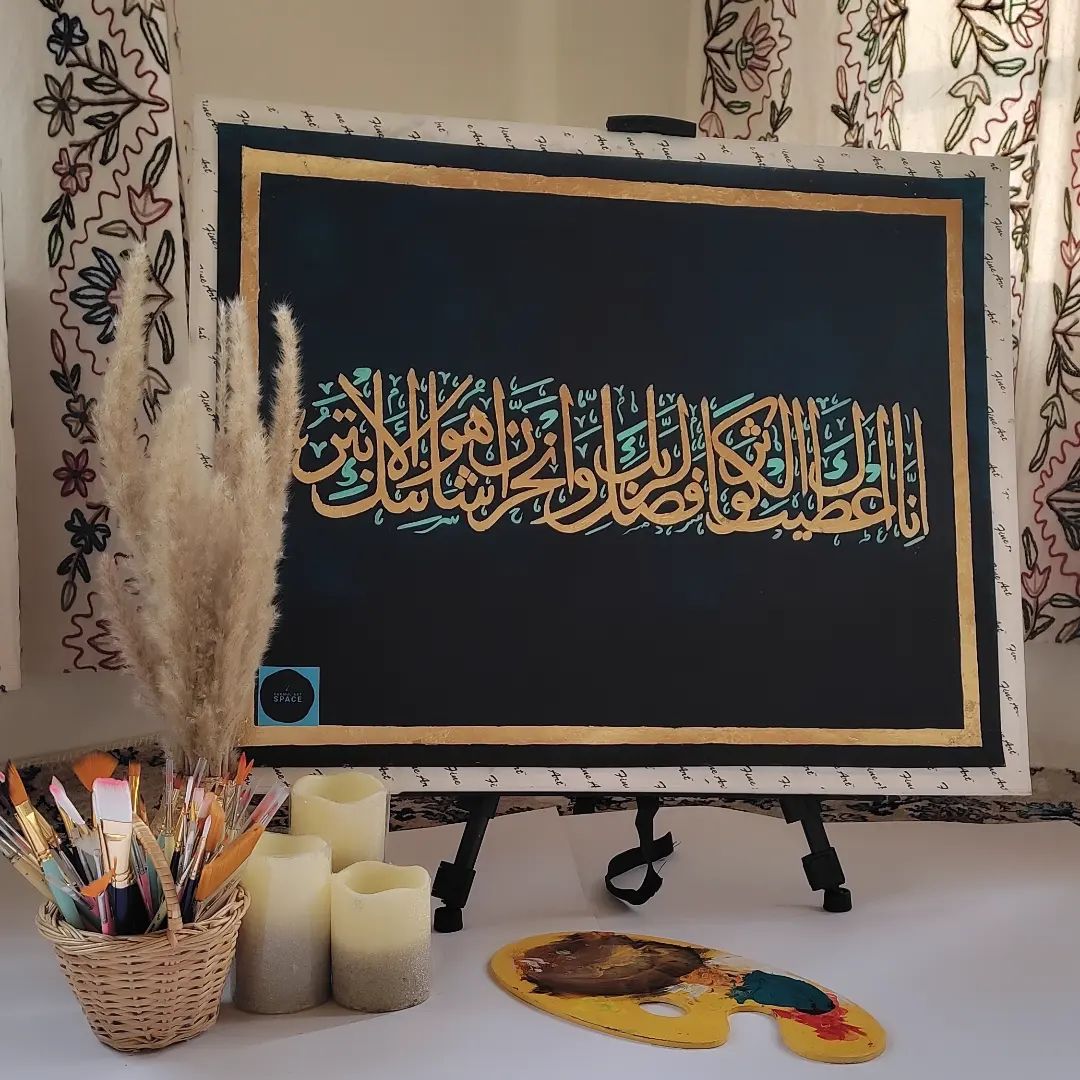 إنا أعطينك الكوثر فصل لربك وانحر إن شانئك هو الأبتر
Fine Art
SPACE